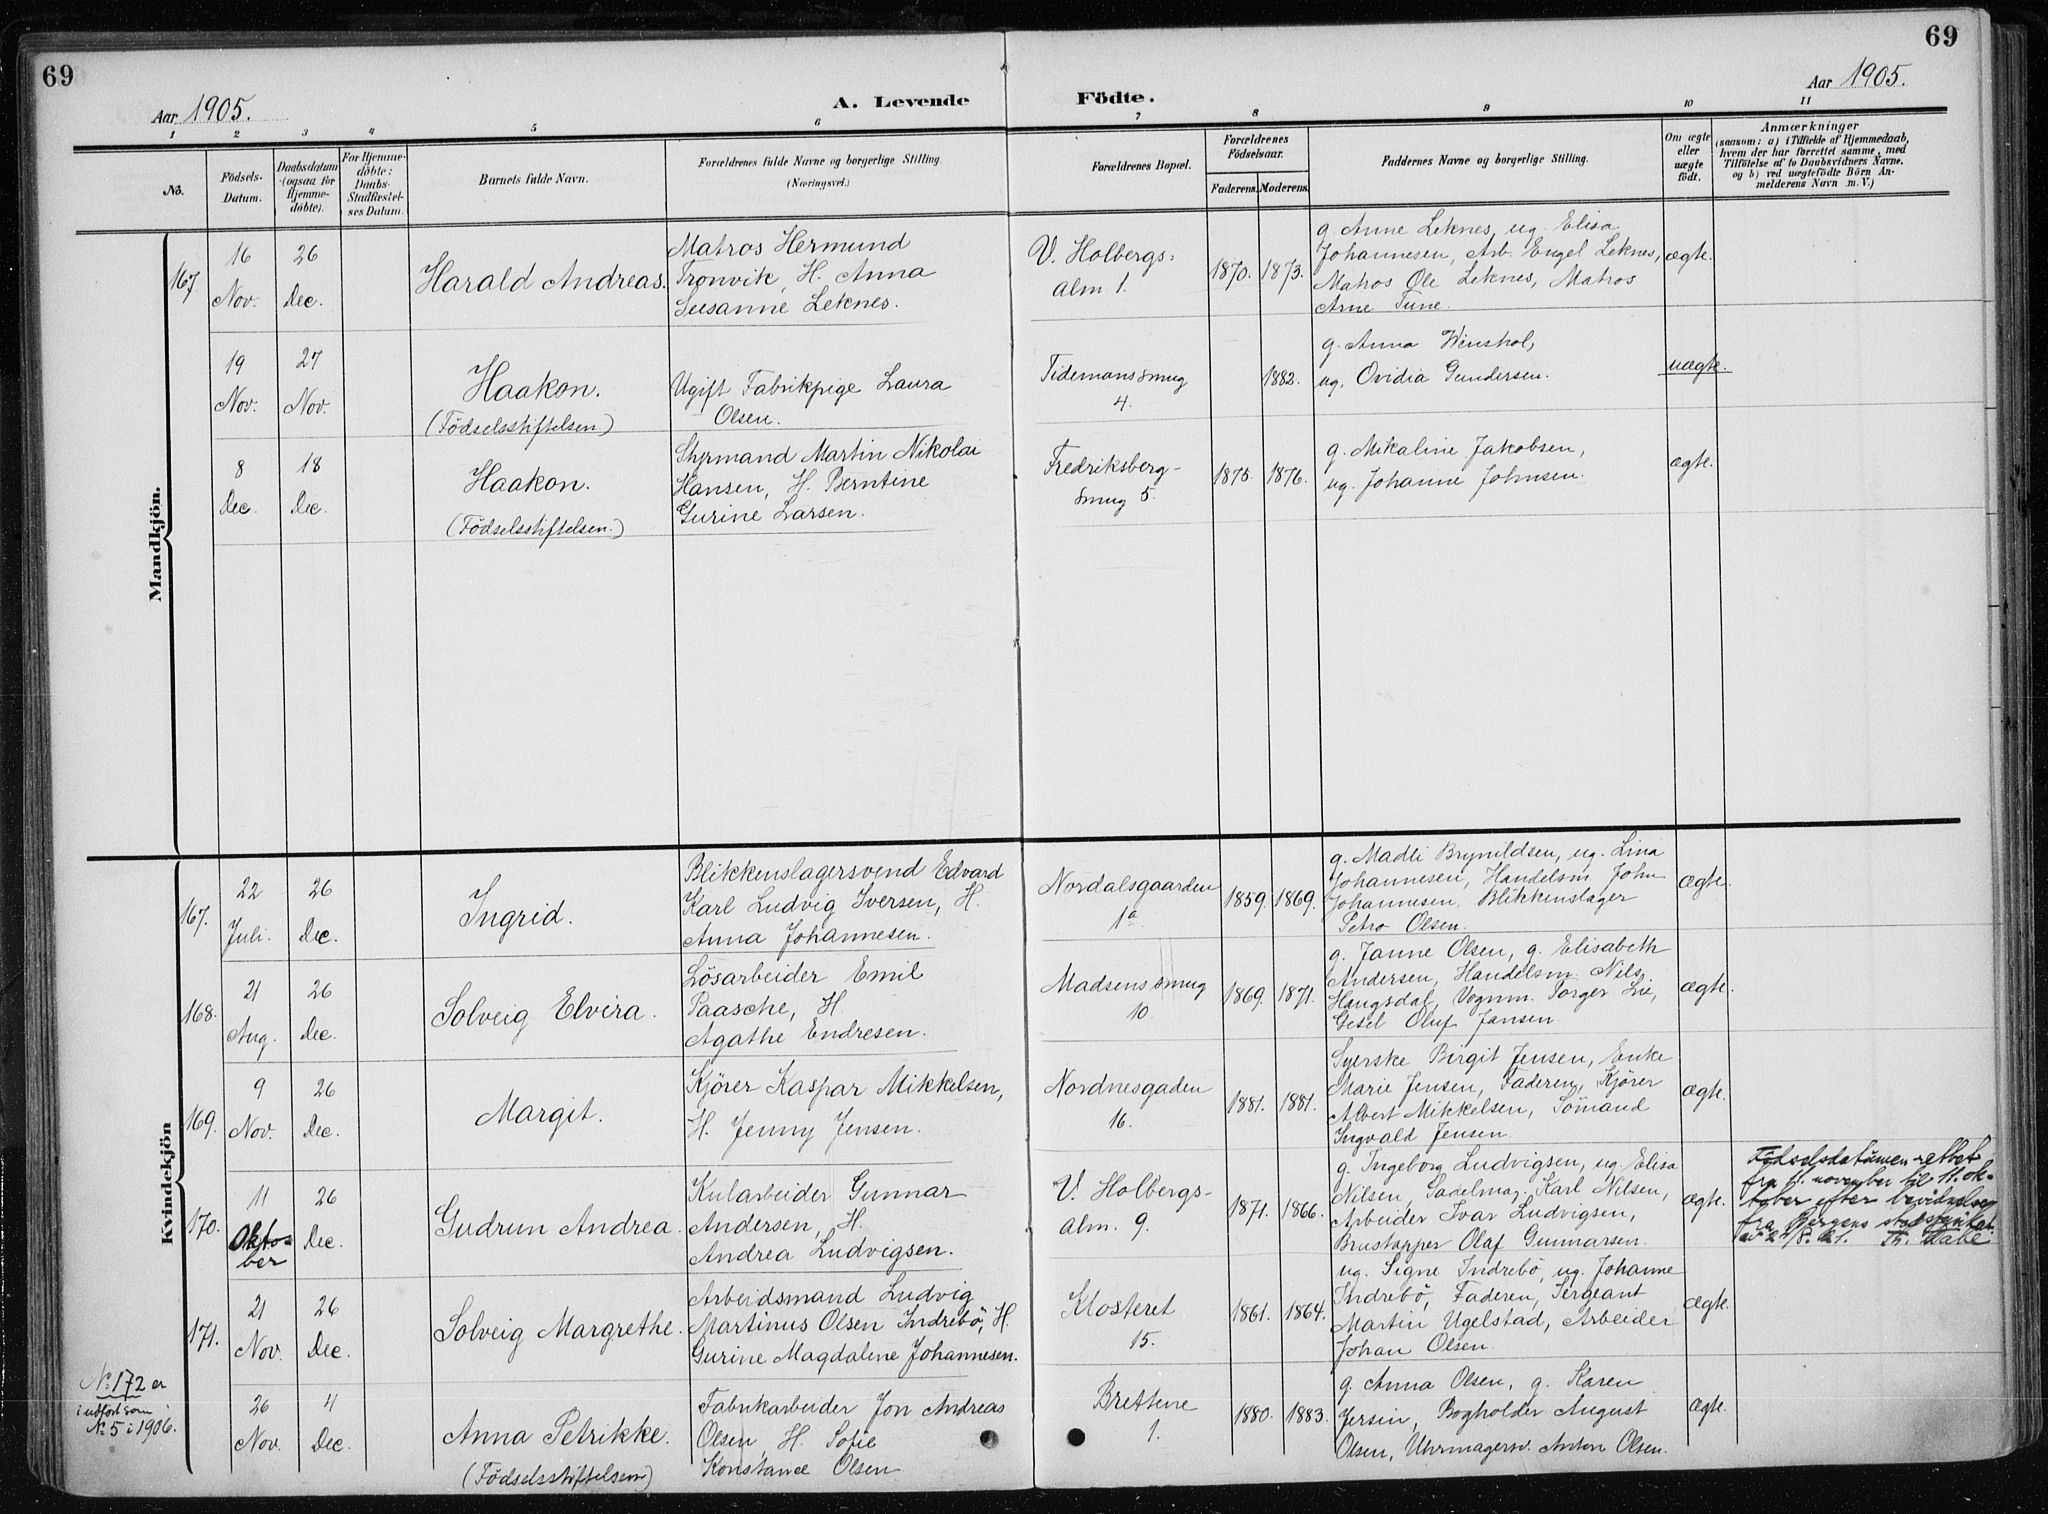 69
69
Aar 1905.
A. Levende
Födte.
Aar 1905.
1 2 3 4 5 6 7 8 9 10 11
No.
Födsels-
Datum.
Daabsdatum
(ogsaa for
Hjemme-
döbte).
For Hjemme-
döbte:
Daabs-
Stadfæstel-
ses Datum.
Barnets fulde Navn.
Forældrenes fulde Navne og borgerlige Stilling.
(Næringsvei.)
Forældrenes Bopæl.
Forældrenes
Födselsaar.
Faderens. Moderens.
Faddernes Navne og borgerlige Stilling.
Om ægte
eller
uægte
födt.
Anmærkninger
(saasom: a) i Tilfælde af Hjemmedaab,
hvem der har forrettet samme, med
Tilföielse af to Daabsvidners Navne.
og b) ved uægtefödte Börn An-
melderens Navn m. V.)
Mandkjön.
167.
16
Nov.
26
Dec.
Harald Andreas.
Matros Hermund
Tronvik, H. Anna
Susanne Leknes.
V. Holbergs-
alm 1.
1870. 1873.
g. Anne Leknes, ug. Elisa
Johannesen, Arb. Engel Leknes,
Matros Ole Leknes, Matros
Arne Tune.
ægte.
19
Nov.
27
Nov.
Haakon.
(Födselsstiftelsen)
Ugift Fabrikpige Laura
Olsen.
Tidemanssmug
4.
1882.
g. Anna Winshol,
ug. Ovidia Gundersen.
uægte.
8
Dec.
18
Dec.
Haakon.
(Födselsstiftelsen.)
Styrmand Martin Nikolai
Hansen, H. Berntine
Gurine Larsen.
Fredriksberg-
smug 5.
1875. 1876.
g. Mikaline Jakobsen,
ug. Johanne Johnsen.
ægte.
Kvindekjön
167.
22
Juli.
26
Dec.
Ingrid.
Blikkenslagersvend Edvard
Karl Ludvig Iversen, H.
Anna Johannesen.
Nordalsgaarden
1a
1859. 1869.
g. Madli Brynildsen, ug. Lina
Johannesen, Handelsm. John
Johannesen. Blikkenslager
Petro Olsen.
Ægte.
168.
21
Aug.
26
Dec.
Solveig Elvira.
Lösarbeider Emil
Paasche, H.
Agathe Endresen.
Madsenssmug
10.
1869. 1871.
g. Janne Olsen, g. Elisabeth
Andersen, Handelsm. Nils
Haugsdal, Vognm. Torger Lie,
Gesel Oluf Jansen.
ægte.
169.
9
Nov.
26
Dec.
Margit.
Kjörer Kaspar Mikkelsen,
H. Jenny Jensen.
Nordnesgaden
16.
1881. 1881.
Syerske Birgit Jensen, Enke
Marie Jensen, Faderen, Kjörer
Albert Mikkelsen, Sömand
Ingvald Jensen.
ægte.
170.
11
Okto-
ber
26
Dec.
Gudrun Andrea.
Kularbeider Gunnar
Andersen, H.
Andrea Ludvigsen.
V. Holbergs-
alm. 9.
1871. 1866.
g. Ingeborg Ludvigsen, ug. Elisa
Nilsen, Sadelmag. Karl Nilsen,
Arbeider Ivar Ludvigsen,
Brustapper Olaf Gunnarsen.
ægte.
Födselsdatumen rettet
fra 11. november til 11. ok-
tober efter bevidnelse
fra Bergens
171.
21
Nov.
26
Dec.
Solveig Margrethe.
Arbeidsmand Ludvig
Martinus Olsen Indrebö, H.
Gurine Magdalene Johannesen.
Klosteret
15.
1861. 1864.
ug. Signe Indrebö, ug. Johanne
Indrebö, Faderen, Sergeant
Martin Ugelstad, Arbeider
Johan Olsen.
Ægte.
No 172 er
indfört som
No 5 i 1906.
26
Nov.
4
Dec.
Anna Petrikke.
(Födselsstiftelsen)
Fabrikarbeider Jon Andreas
Olsen, H. Sofie
Konstance Olsen
Brettene
1.
1880. 1883.
g. Anna Olsen, g. Karen
Jersin, Bogholder August
Olsen, Uhrmagersv. Anton Olsen.
Ægte.